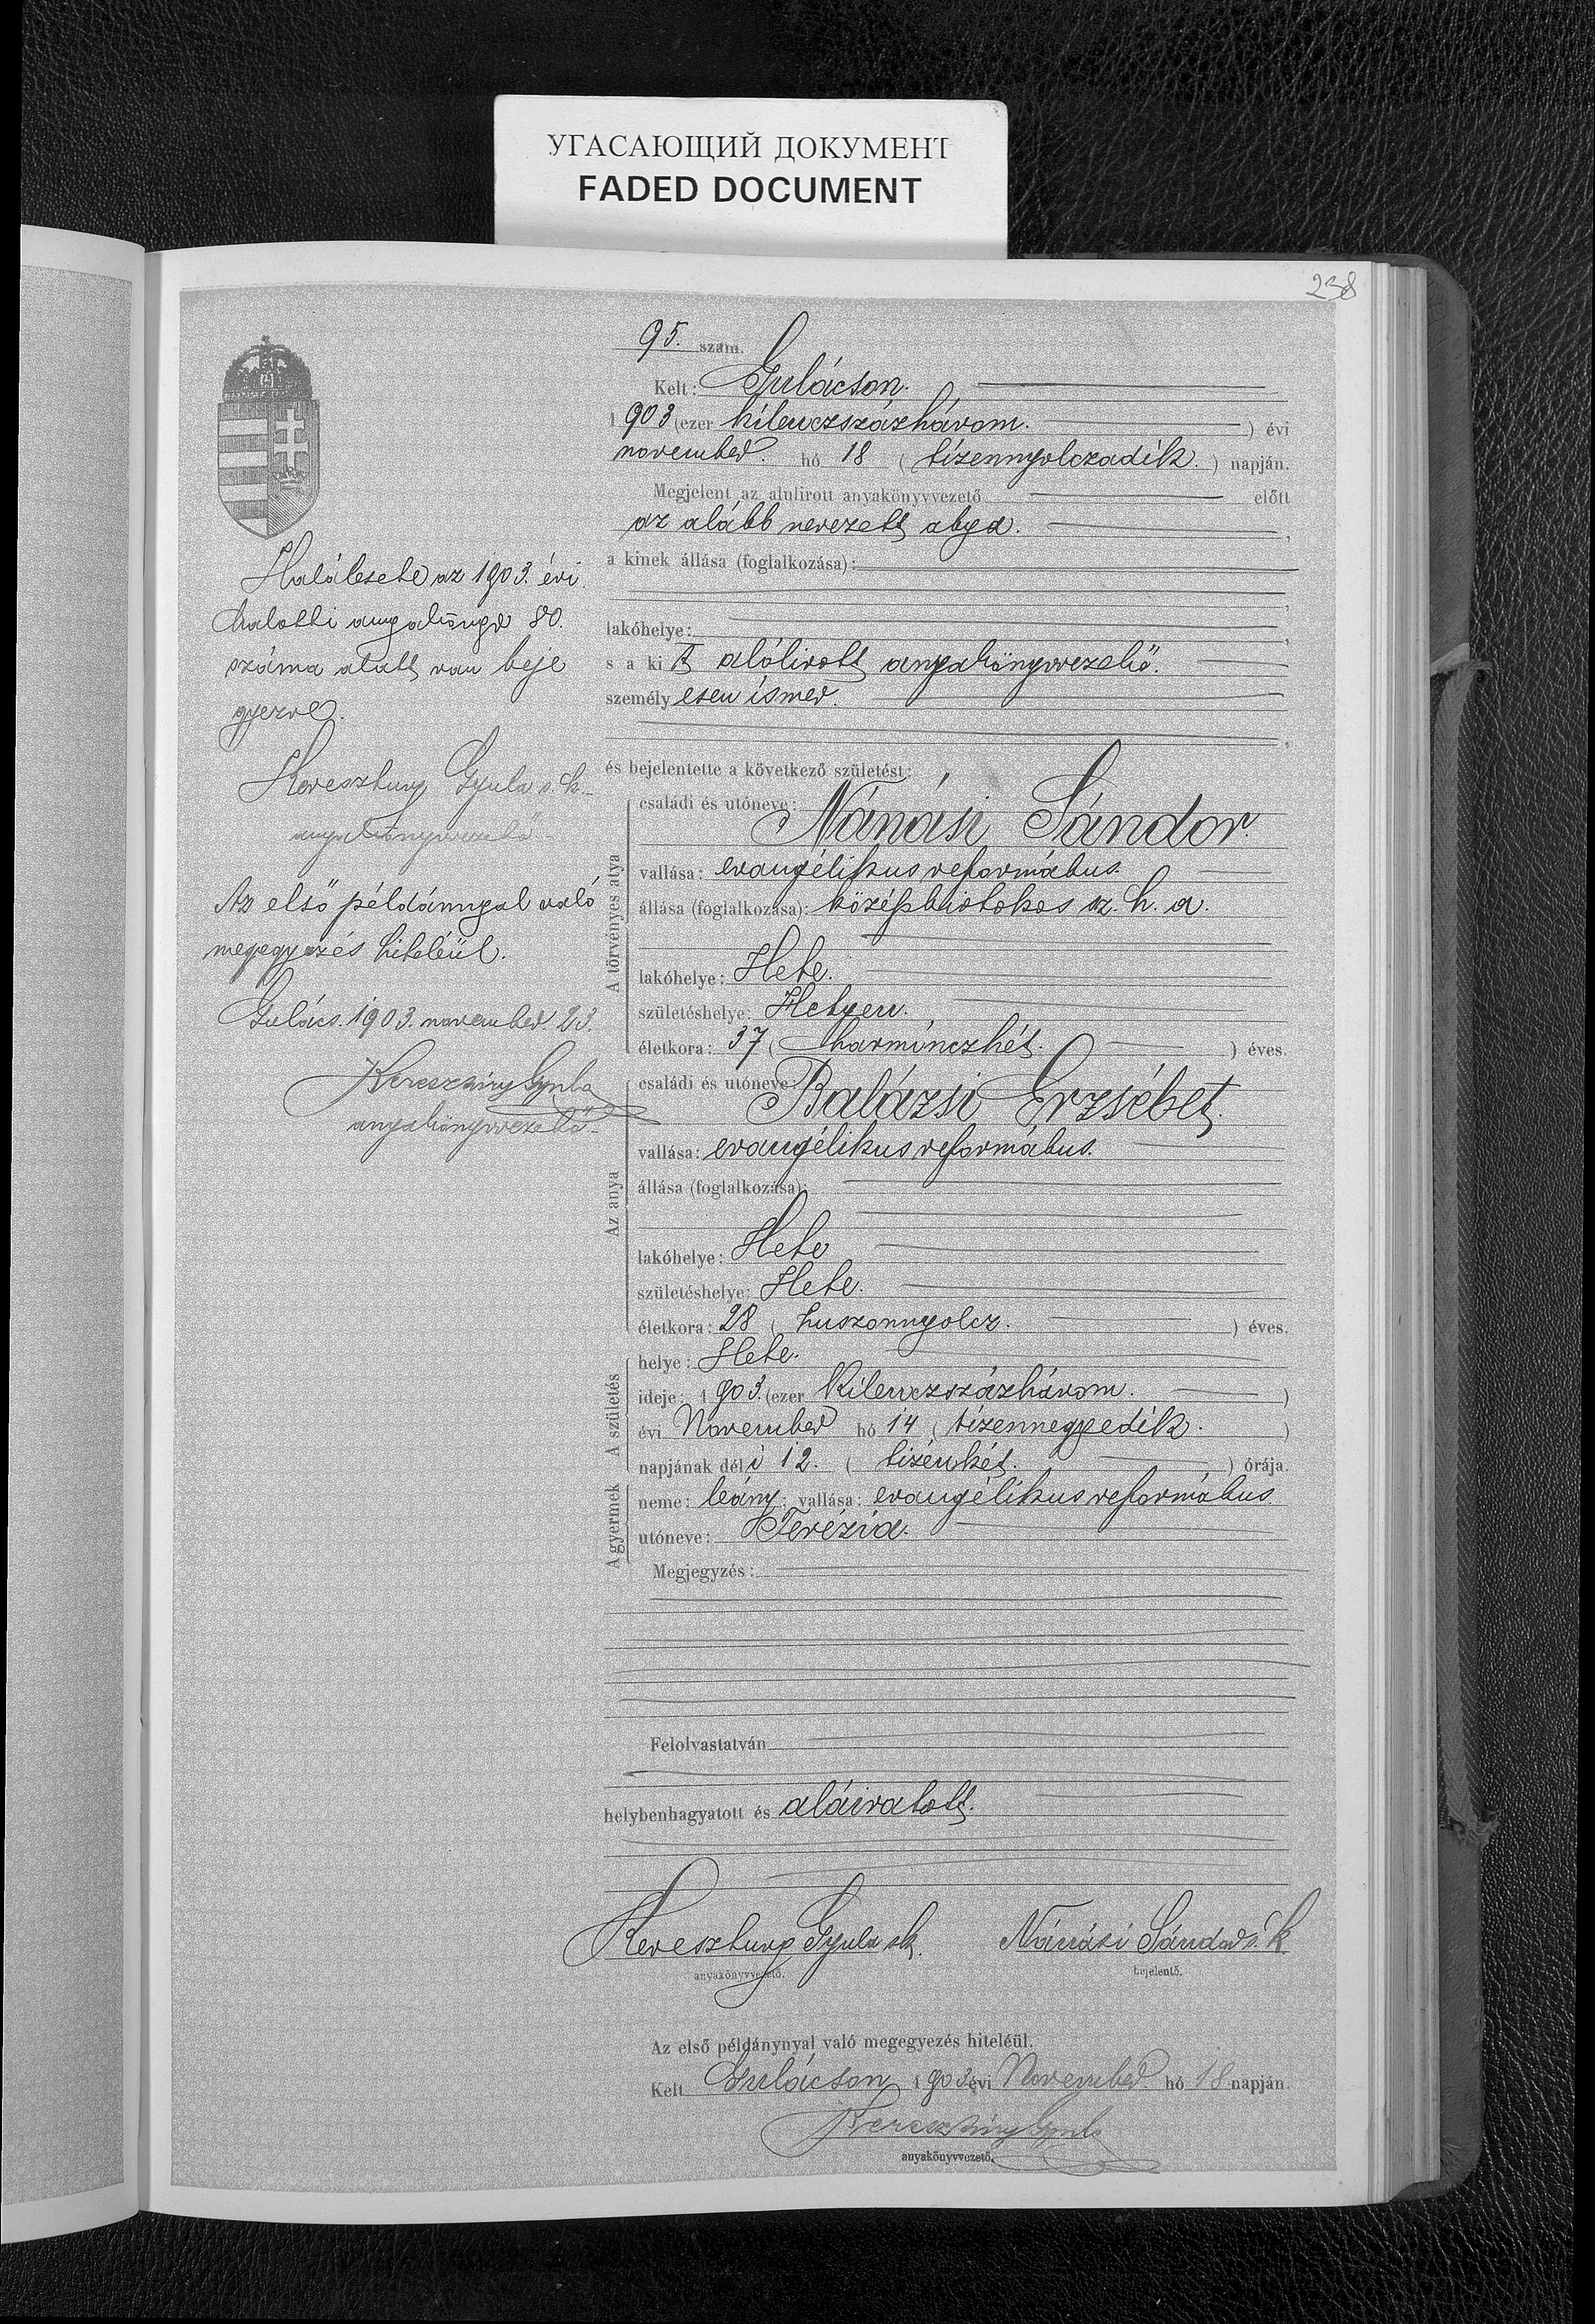 УГАСАЮЩИЙ ДОКУМЕНТ
FADED DOCUMENT
238
95. szám.
Kelt: Gulácson.
1903 (ezer kilenczszázhárom.) évi
november. hó 18 (tizennyolczadik.) napján.
Megjelent az alulirott anyakönyvvezető előtt
az alább nevezett atya.
a kinek állása (foglalkozása):
lakóhelye:
s a kit alólirott anyakönyvvezető.
személyesen ismer.
és bejelentette a következő születést:
A törvényes atya
családi és utóneve: Nánási Sándor.
vallása: evangélikus református.
állása (foglalkozása): középbirtokos sz. h. a.
lakóhelye: Hete.
születéshelye: Hetyen.
életkora: 37 (harminczhét.) éves.
Az anya
családi és utóneve: Balázsi Erzsébet.
vallása: evangélikus református.
állása (foglalkozása):
lakóhelye: Hete
születéshelye: Hete.
életkora: 28 (huszonnyolcz.) éves.
A születés
helye: Hete.
ideje: 1903. (ezer kilenczszázhárom.)
évi November hó 14 (tizennegyedik.)
napjának déli 12. (tizenkét.) órája.
A gyermek
neme: leány; vallása: evangélikus református
utóneve: Terézia.
Megjegyzés:
Felolvastatván
helybenhagyatott és aláiratott.
Keresztury Gyula sk. Nánási Sándor s. k
anyakönyvvezető. bejelentő.
Az első példánynyal való megegyezés hiteléül.
Kelt Gulácson 1903 évi November. hó 18 napján.
Keresztury Gyula
anyakönyvvezető.
Halálesete az 1903. évi
halotti anyakönyv 80.
száma alatt van beje
gyezve.
Keresztury Gyula s. k.
anyakönyvvezető
Az első példánnyal való
megegyezés hiteléül.
Gulács. 1903. november 23.
Keresztury Gyula
anyakönyvvezető